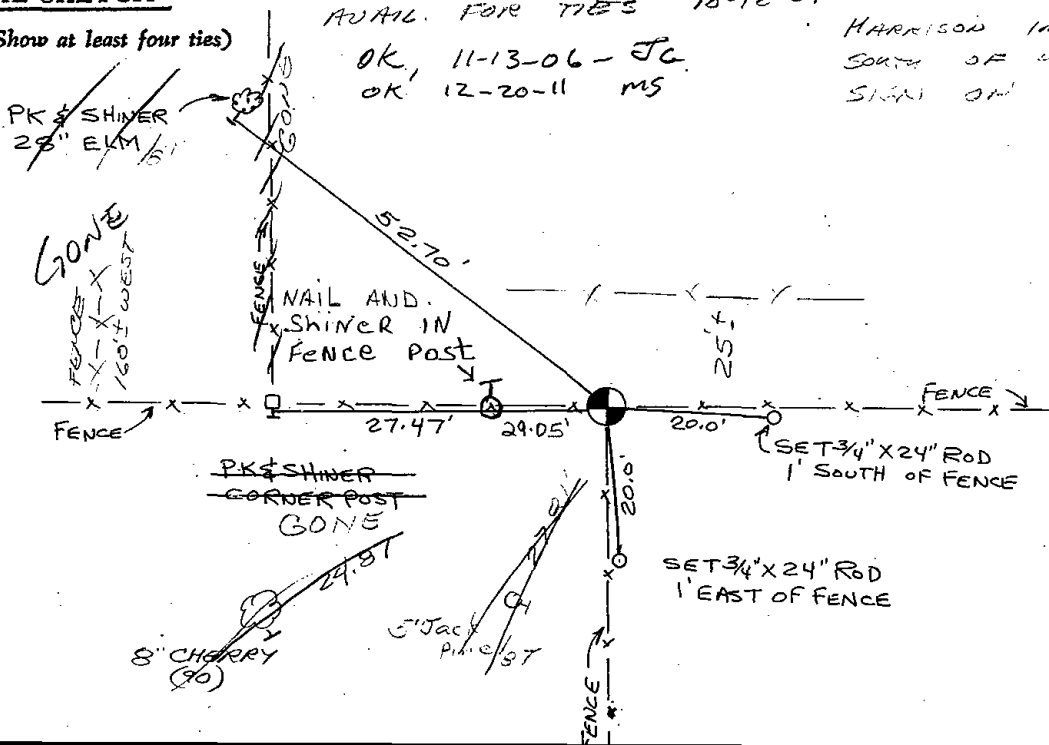 Show at least four ties)
AVAIL. FOR TIES
OK, 11-13-06 - JG
OK 12-20-11 MS
HARRISON
SOUTH OF
SIGN ON
PK & SHINER
28" ELM
GONE
52.70'
GONE
FENCE
160'± WEST
FENCE
NAIL AND
SHINER IN
FENCE POST
25'±
FENCE
FENCE
27.47'
29.05'
20.0'
SET 3/4" X 24" ROD
1' SOUTH OF FENCE
PK & SHINER
CORNER POST
GONE
20.0'
24.87
SET 3/4" X 24" ROD
1' EAST OF FENCE
5" Jack
pine
8" CHERRY
(90)
FENCE